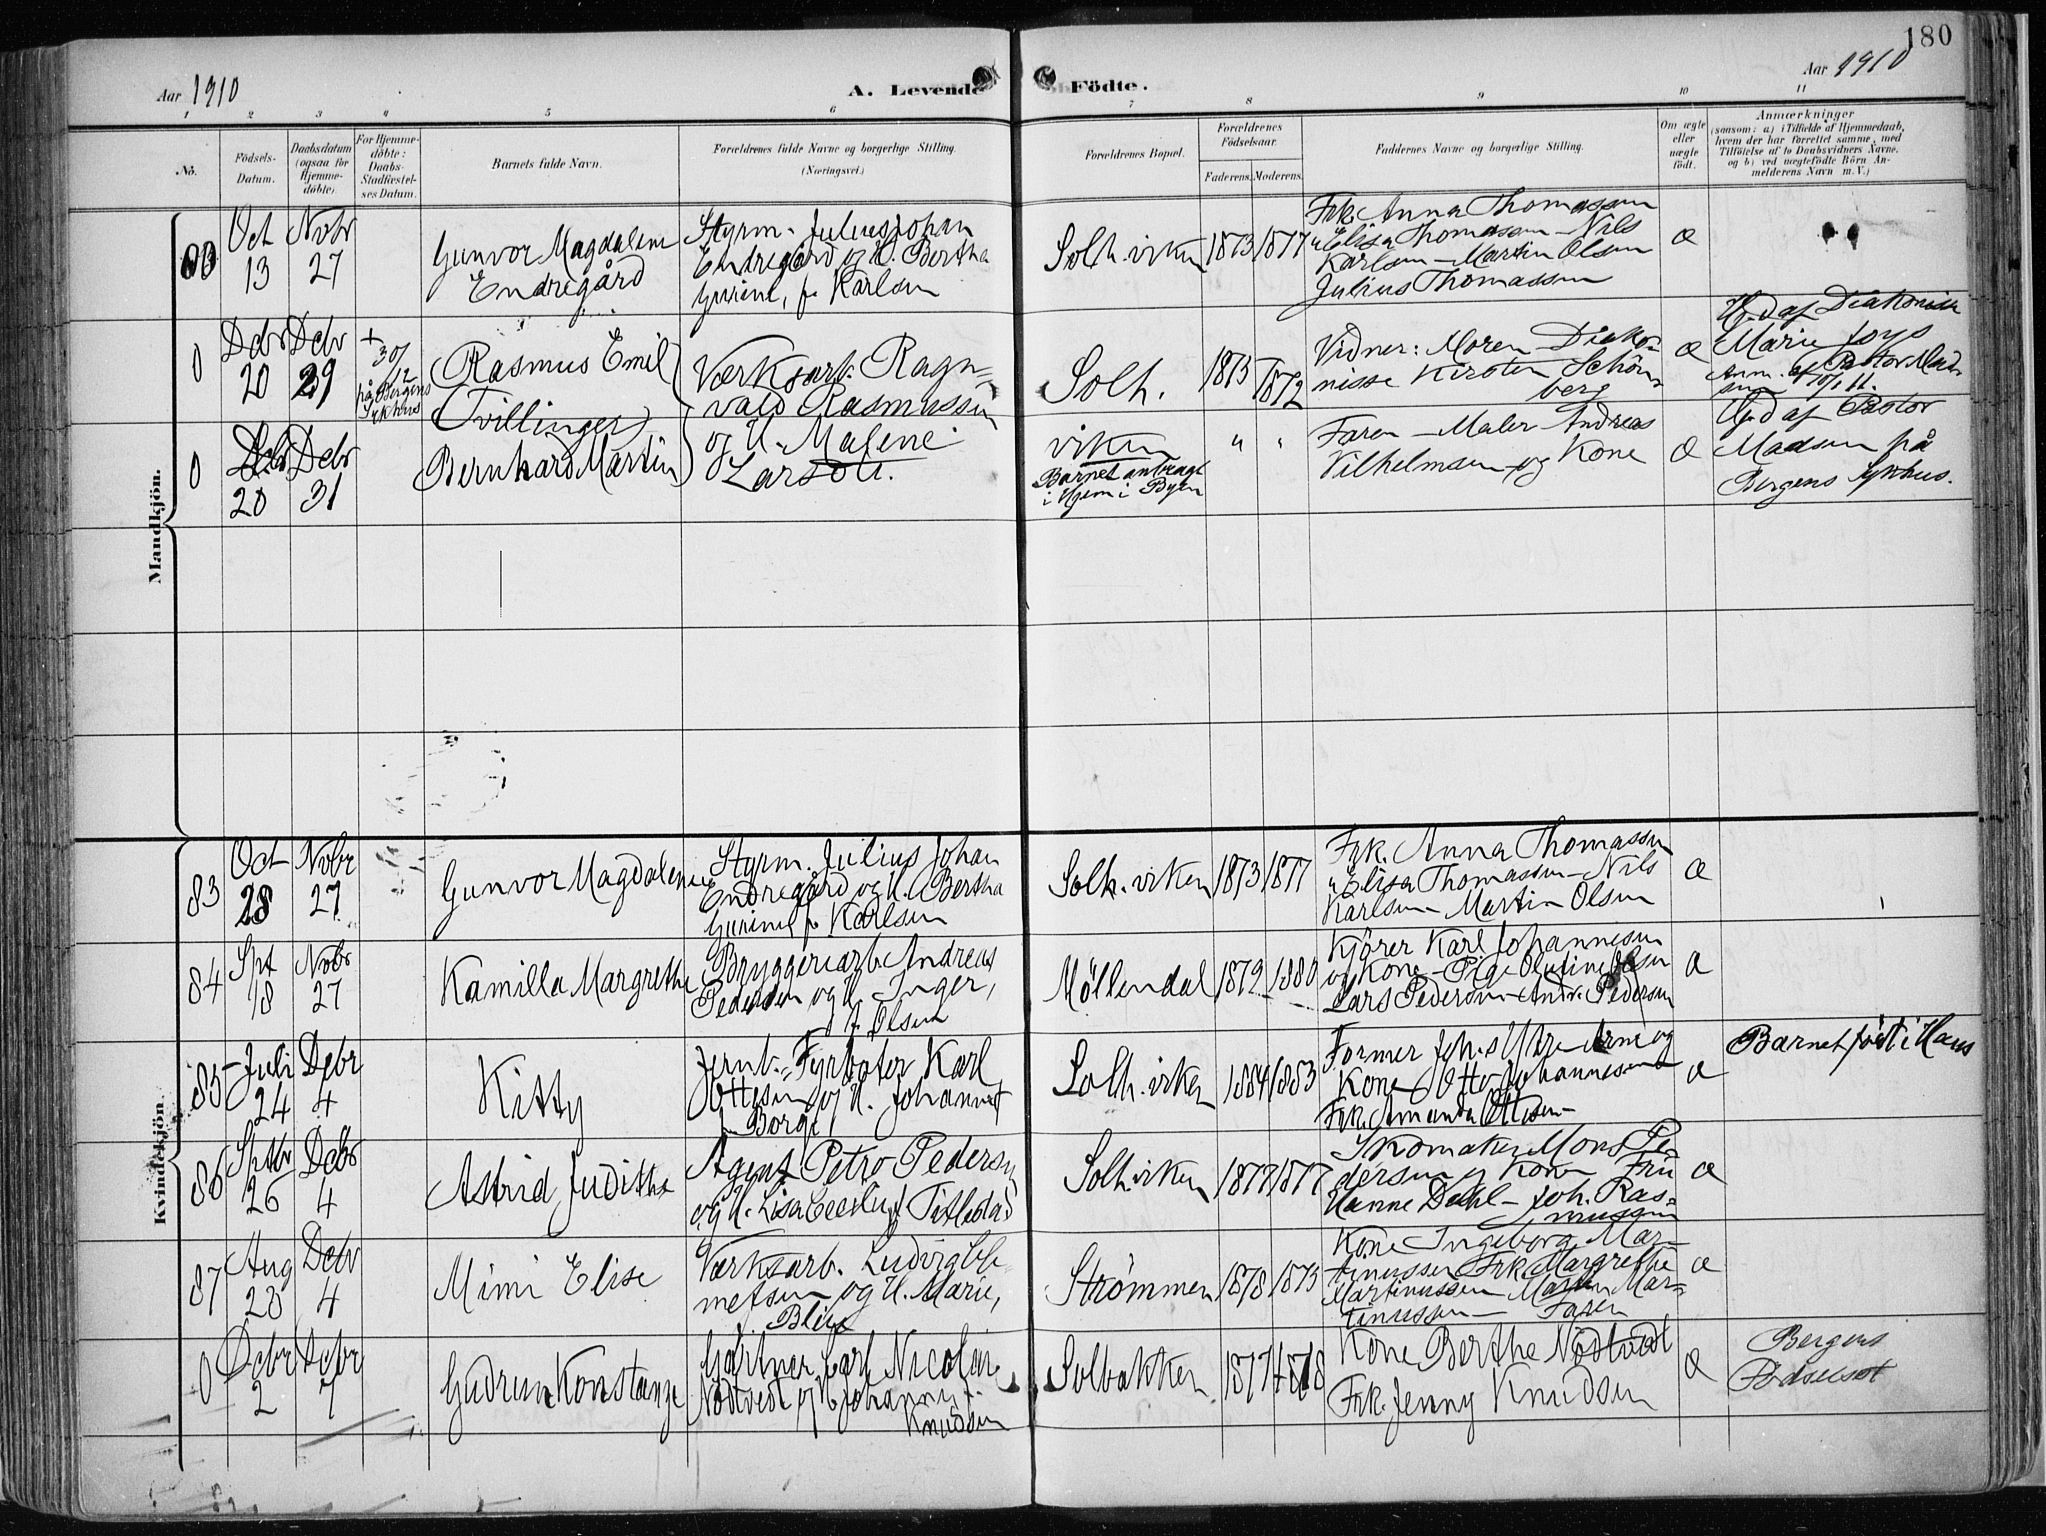 180
Aar 1910
A. Levende Födte.
Aar 1910
1 2 3 4 5 6 7 8 9 10 11
No.
Födsels-
Datum.
Daabsdatum
(ogsaa for
Hjemme-
döbte).
For Hjemme-
döbte:
Daabs-
Stadfæstel-
ses Datum.
Barnets fulde Navn.
Forældrenes fulde Navne og borgerlige Stilling.
(Næringsvei.)
Forældrenes Bopæl.
Forældrenes
Födselsaar.
Faderens. Moderens.
Faddernes Navne og borgerlige Stilling.
Om ægte
eller
uægte
födt.
Anmærkninger
(saasom: a) i Tilfælde af Hjemmedaab,
hvem der har forrettet samme, med
Tilföielse af to Daabsvidners Navne.
og b) ved uægtefödte Börn An-
melderens Navn m. V.)
Mandkjön.
Oct
13
Nvbr
27
Gunvor Magdalene
Endregård
Styrm. Julius Johan
Endregård og H. Bertha
Gurine, f. Karlsen
Solh.viken
1873
1877
Frk. Anna Thomassen
" Elisa Thomassen - Nils
Karlsen - Martin Olsen
Julius Thomassen
æ
0
Dcbr
20
Dcbr
29
+
30/
12
på Bergens
Sykhus
Rasmus Emil
(Tvillinger)
Værksarb. Ragn-
vald Rasmussen
Solh.
1873
1872
Vidner: Moren Diako-
nisse Kirsten Schön-
berg
æ
Hjd af Diakonisse
Marie Joys
Anm. af Pastor Mad-
sen 10/1 11.
0
Dcbr
20
Dcbr
31
Bernhard Martin
og H. Malene
Larsen.
viken
Barnet antragt
i Hjem i Byen
" "
Faren - Maler Andreas
Vilhelmsen og Kone
æ
Hjd af Pastor
Madsen på
Bergens Sykhus.
Kvindekjön.
83
Oct
28
Nvbr
27
Gunvor Magdalene
Styrm. Julius Johan
Endregård og H. Bertha
Gurine f. Karlsen
Solh.viken
1873
1877
Frk. Anna Thomassen
" Elisa Thomassen - Nils
Karlsen - Martin Olsen
æ
84
Spt
18
Nvbr
27
Kamilla Margrethe
Bryggeriarb. Andreas
Pedersen og H. Inger,
f. Olsen
Möllendal
1872
1880
Kjörer Karl Johannesen
og Kone - Pige Oluline Olsen
Lars Pedersen - Andr. Pedersen
æ
85
Juli
24
Dcbr
4
Kitty
Jernb. Fyrböter Karl
Ottesen og H. Johanne f
Borge
Solh.viken
1884
1883
Former Joh.s Ytre-Arne og
Kone - Otto Johannesen
Frk. Amanda Ottesen
æ
Barnet födt i Haus
86
Sptbr
26
Dcbr
4
Astrid Judith
Agent Petro Pedersen
og H. Lisa Cecilie f Titlestad
Solh.viken
1877
1877
Skomaker Mons Pe-
dersen og Kone Fru
Hanne Dahl - Joh. Ras-
mussen
æ
87
Aug
20
Dcbr
4
Mimi Elise
Værksarb. Ludvig Cle-
metsen og H. Marie,
Blix
Strömmen
1878
1873
Kone Ingeborg Mar-
tinussen Frk. Margrethe
Martinussen Martin Mar-
tinussen - Faren
æ
0
Dcbr
2
Dcbr
7
Gudrun Konstanze
Gartner Carl Nicolai
Nödtvedt og H Johanne f.
Knudsen
Solbakken
1877
1878
Kone Berthe Nödtvedt
Frk. Jenny Knudsen
æ
Bergens
Födselsst